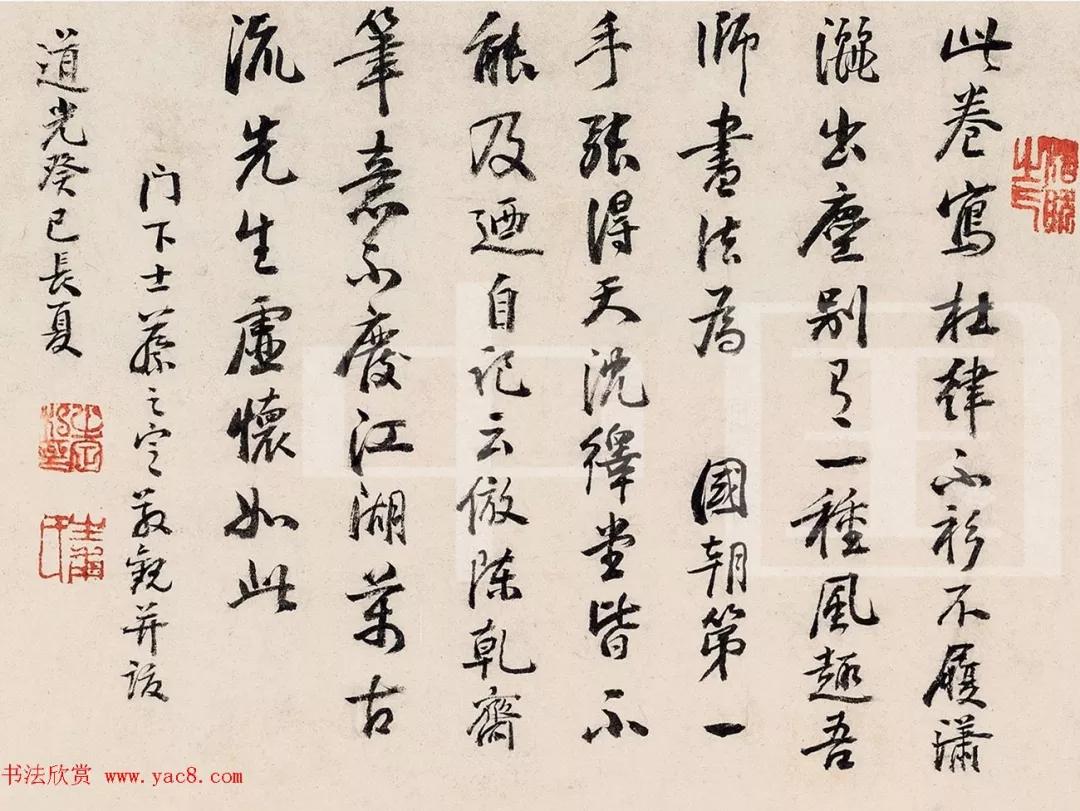 此卷寫杜律不衫不履瀟
灑出塵別有一種風趣吾
師書法為 國朝第一
手張得天沈繹堂皆不
能及迺自記云倣陈乾齋
筆意不廢江湖萬古
流先生虛懷如此
门下士蔡之定敬觀并跋
道光癸巳長夏
书法欣赏 www.yac8.com